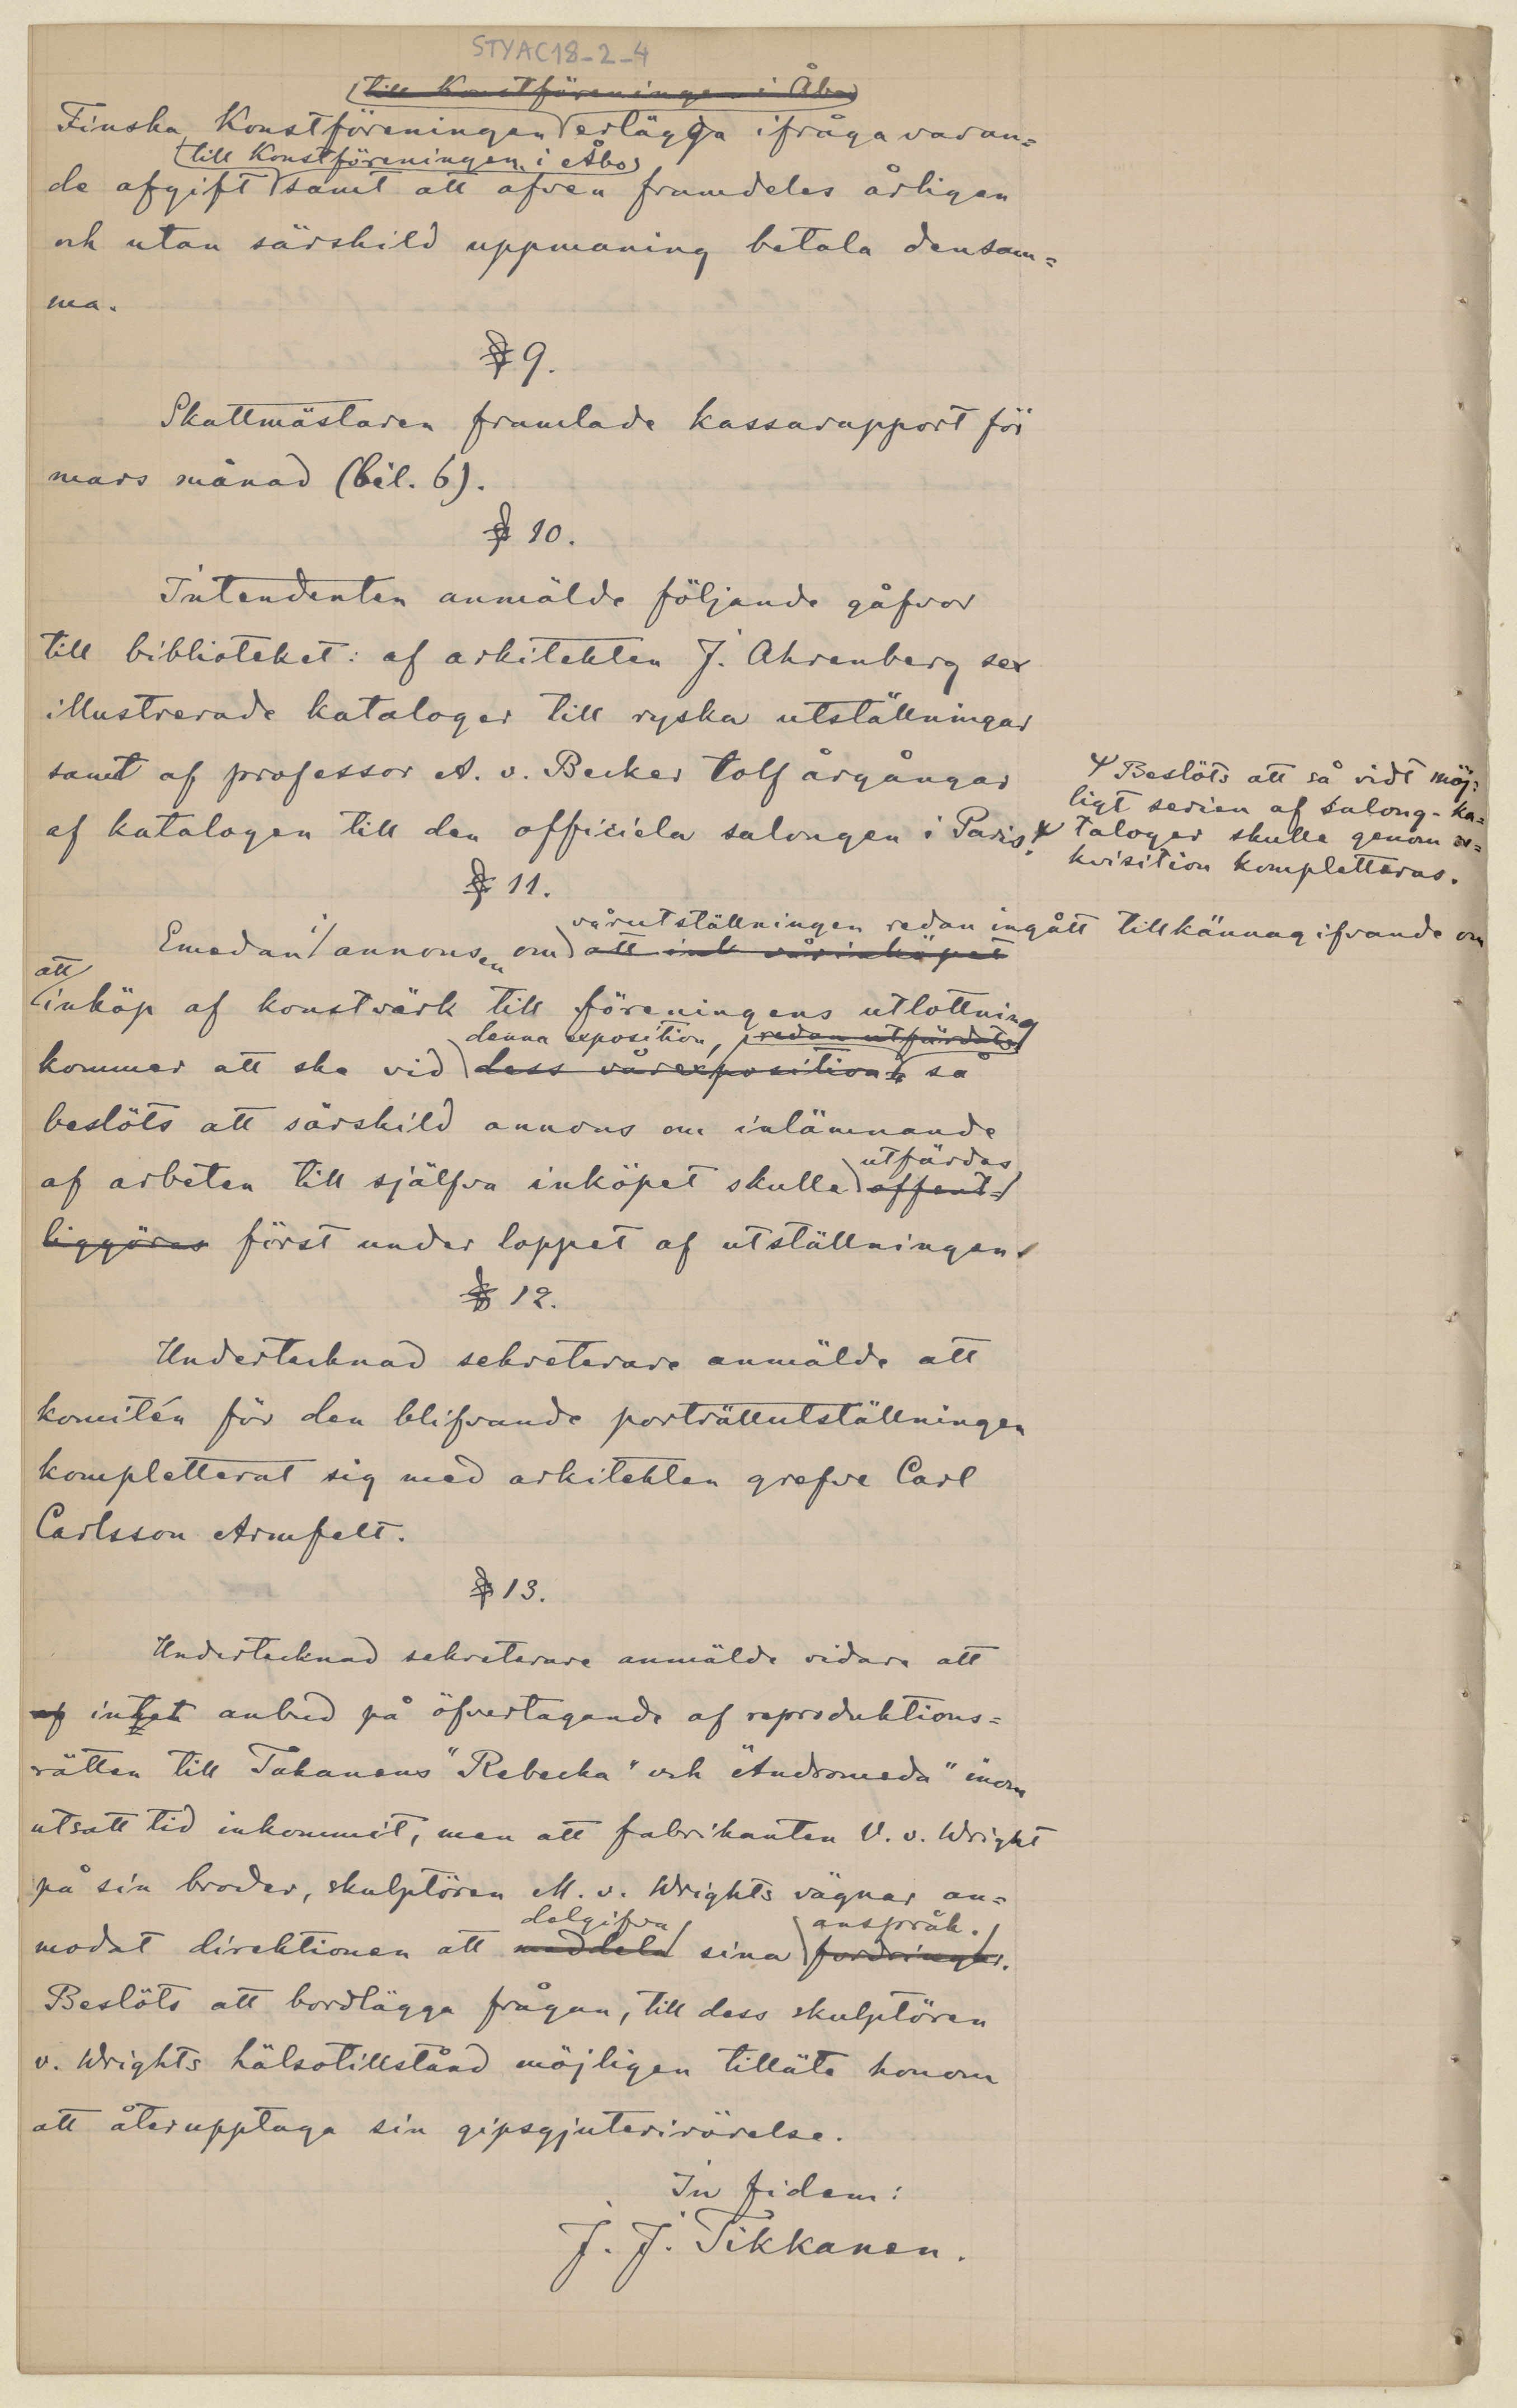 STYAC18-2-4
till Konstföreningen i Åbo
Finska Konstföreningen erlägga ifrågavaran=
till Konstföreningen i Åbo
de afgift samt att äfven framdeles årligen
och utan särskild uppmaning betala densam=
ma.
§ 9.
Skattmästaren framlade kassarapport för
mars månad (bil. 6).
§ 10.
Intendenten anmälde följande gåfvor
till biblioteket: af arkitekten J. Ahrenberg sex
illustrerade kataloger till ryska utställningar
samt af professor A. v. Becker tolf årgångar
af katalogen till den officiela salongen i Paris.
Beslöts att så vidt möj=
ligt serien af salong-ka=
taloger skulle genom re=
kvisition kompletteras.
§ 11.
vårutställningen redan ingått tillkännagifvande om
Emedan i annonsen om att ink vårinköpet
att
inköp af konstvärk till föreningens utlottning
denna exposition, redan utfärdats
kommer att ske vid dess vårexposition, så
beslöts att särskild annons om inlämnande
utfärdas
af arbeten till själfva inköpet skulle offent=
liggöras först under loppet af utställningen.
§ 12.
Undertecknad sekreterare anmälde att
komitén för den blifvande porträttutställningen
kompletterat sig med arkitekten grefve Carl
Carlsson Armfelt.
§ 13.
Undertecknad sekreterare anmälde vidare att
af intet anbud på öfvertagande af reproduktions=
rätten till Takanens "Rebecka" och "Andromeda" inom
utsatt tid inkommit, men att fabrikanten V. v. Wright
på sin broder, skulptören M. v. Wrights vägnar an=
delgifva anspråk.
modat direktionen att meddela sina fordringar.
Beslöts att bordlägga frågan, till dess skulptören
v. Wrights hälsotillstånd möjligen tilläte honom
att återupptaga sin gipsgjuterirörelse.
In fidem:
J. J. Tikkanen.